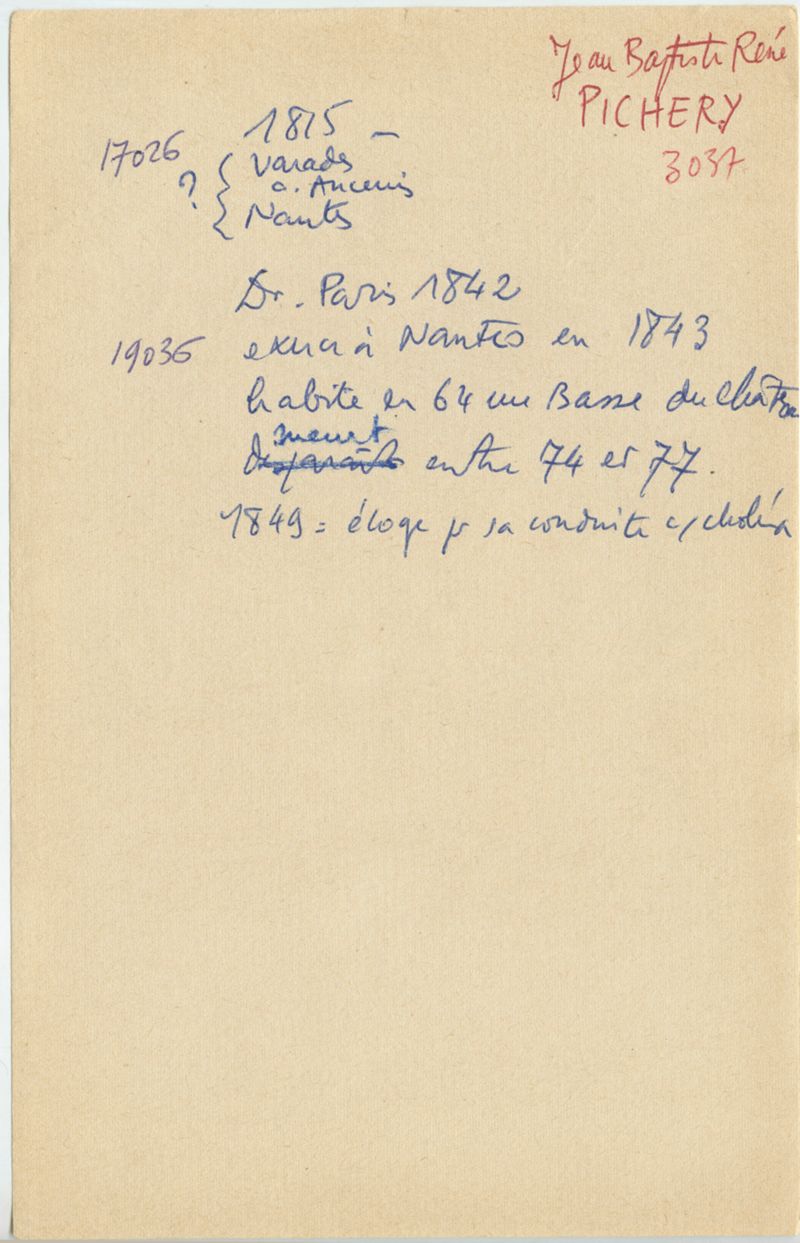 Jean Baptiste René
PICHERY
3037
17026 1815 –
? { Varades
a. Ancenis
Nantes
Dr. Paris 1842
19036 exerce à Nantes en 1843
habite en 64 rue Basse du Château
meurt
disparaît entre 74 et 77.
1849 = éloge pr sa conduite c/ choléra